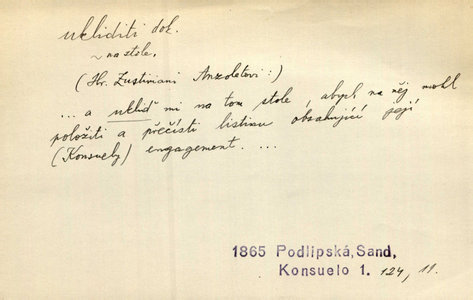 ukliditi dok.
~ na stole.
(Hr. Zustiniani Anzoletovi:)
... a ukliď mi na tom stole, abych na něj mohl
položiti a přečísti listinu obsahující její
(Konsuely) engagement. ...
1865 Podlipská, Sand,
Konsuelo 1. 124, 11.